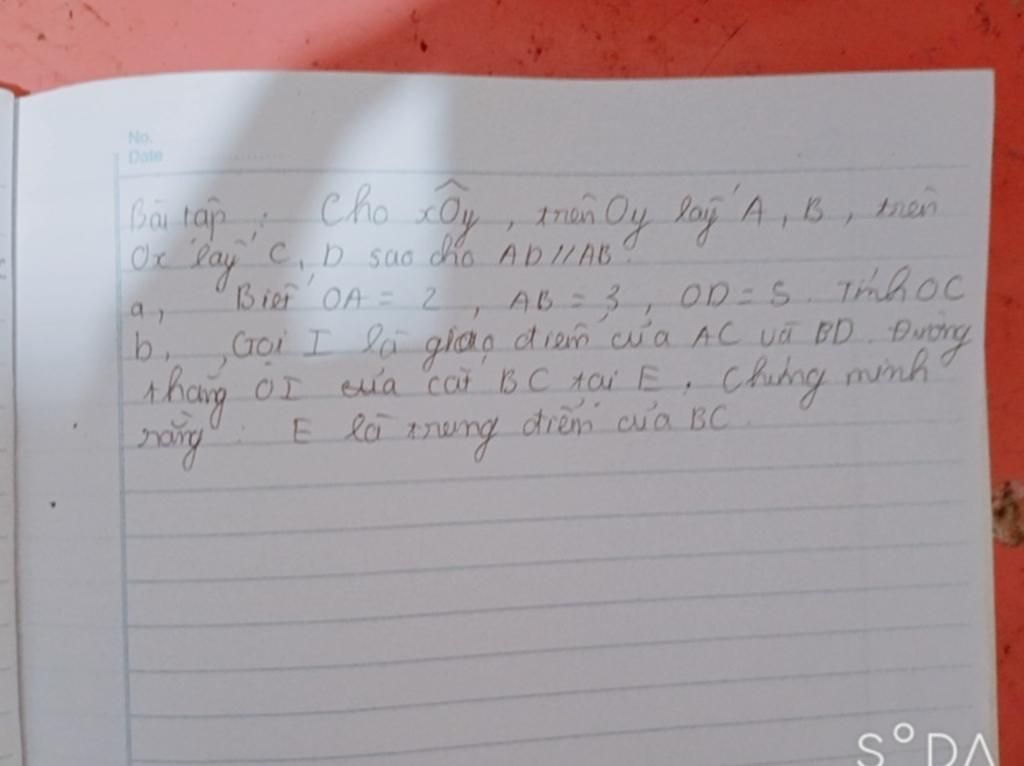 No.
Date
Bài tập : Cho xÔy , trên Oy lấy A , B , trên
Ox lấy C , D sao cho AD // AB .
a, Biết OA = 2 , AB = 3 , OD = 5 . Tính OC
b, Gọi I là giao điểm của AC và BD . Đường
thẳng OI cắt BC tại E . Chứng minh
rằng : E là trung điểm của BC .
S°DA